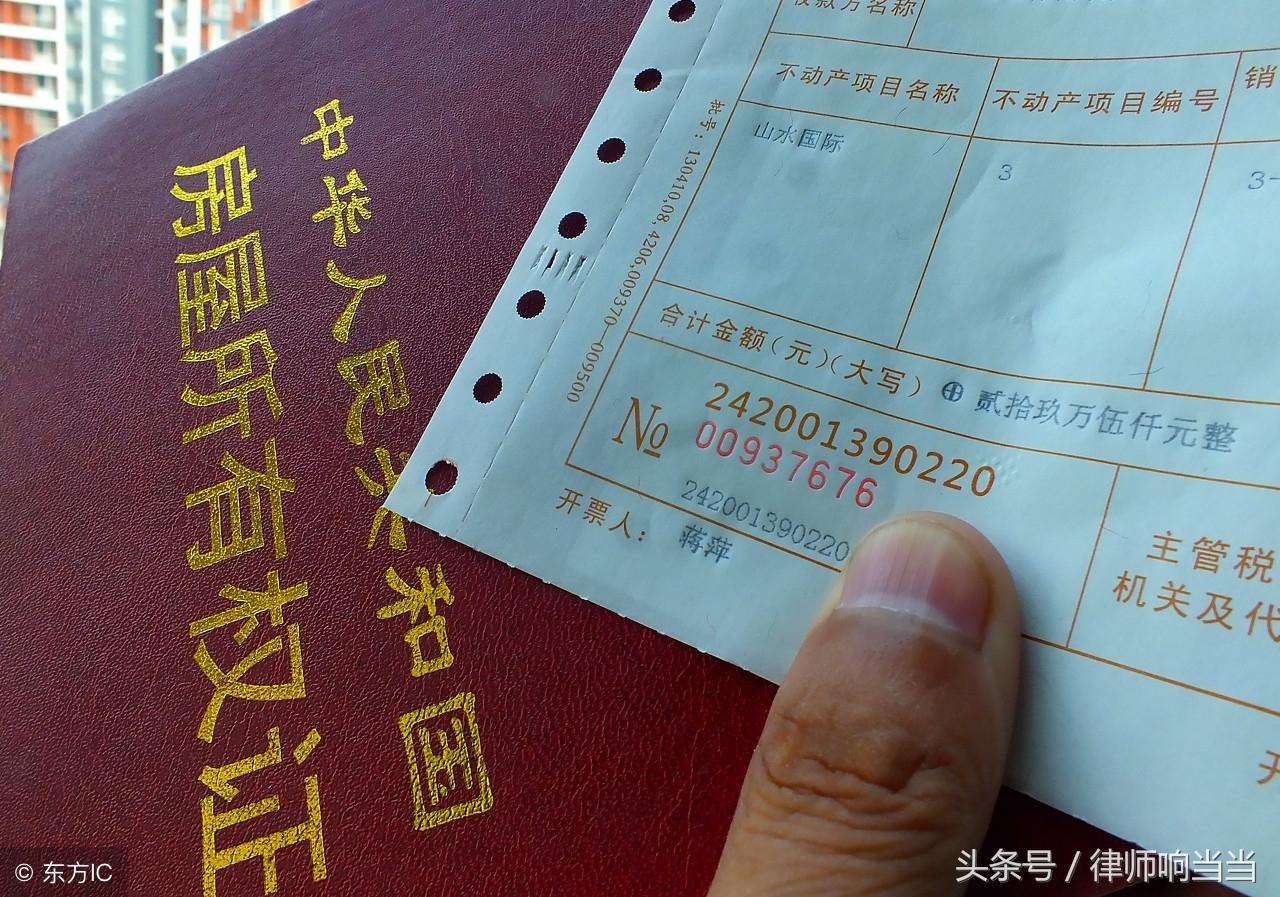 中华人民共和国
房屋所有权证
收款方名称
不动产项目名称
不动产项目编号
销
山水国际
3
3-
批号：130410.08.4206.009370—009500
合计金额(元)(大写)
⊕ 贰拾玖万伍仟元整
242001390220
№ 00937676
242001390220
开票人：
蒋萍
主管税
机关及代
开
© 东方IC
头条号 / 律师响当当